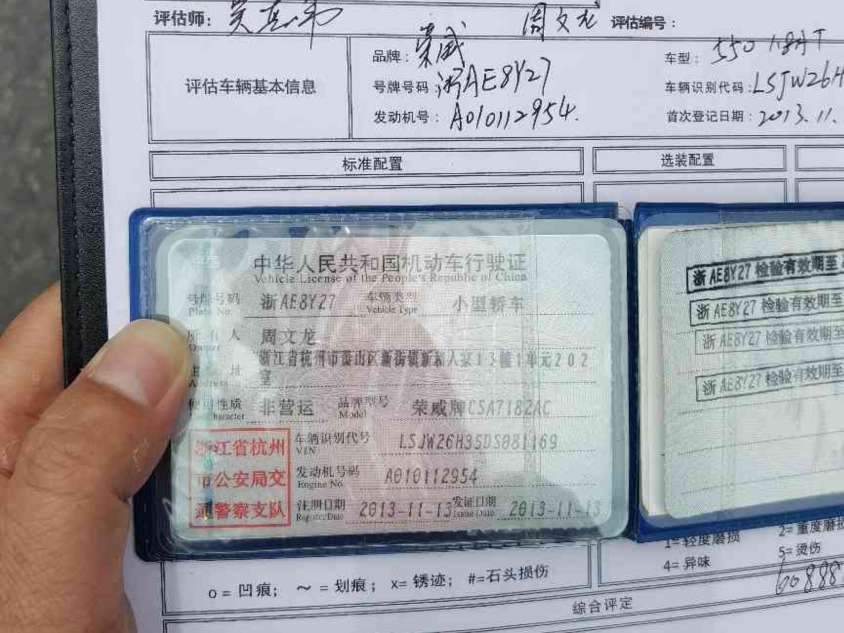 评估师： 周文龙 评估编号：
品牌：荣威 车型：550 1.8AT
评估车辆基本信息 号牌号码：浙AE8Y27 车辆识别代码：LSJW26H
发动机号：A010112954. 首次登记日期：2013.11.
标准配置 选装配置
中华人民共和国机动车行驶证
Vehicle License of the People's Republic of China
号牌号码 浙AE8Y27 车辆类型 小型轿车
Plate No. Vehicle Type
所有人 周文龙
Owner
浙江省杭州市萧山区新街镇 13幢1单元202
址 室
Address
使用性质 非营运 品牌型号 荣威牌CSA7182AC
Character Model
浙江省杭州市公安局交通警察支队
车辆识别代号 LSJW26H3SDS081169
VIN
发动机号码 A010112954
Engine No.
注册日期 2013-11-13 发证日期 2013-11-13
Register Date Issue Date
浙AE8Y27 检验有效期至
浙AE8Y27 检验有效期至
浙AE8Y27 检验有效期至
浙AE8Y27 检验有效期至
1=轻度磨损 2=重度磨损
4=异味 5=烫伤
o=凹痕； ～=划痕； x=锈迹； #=石头损伤
60888
综合评定